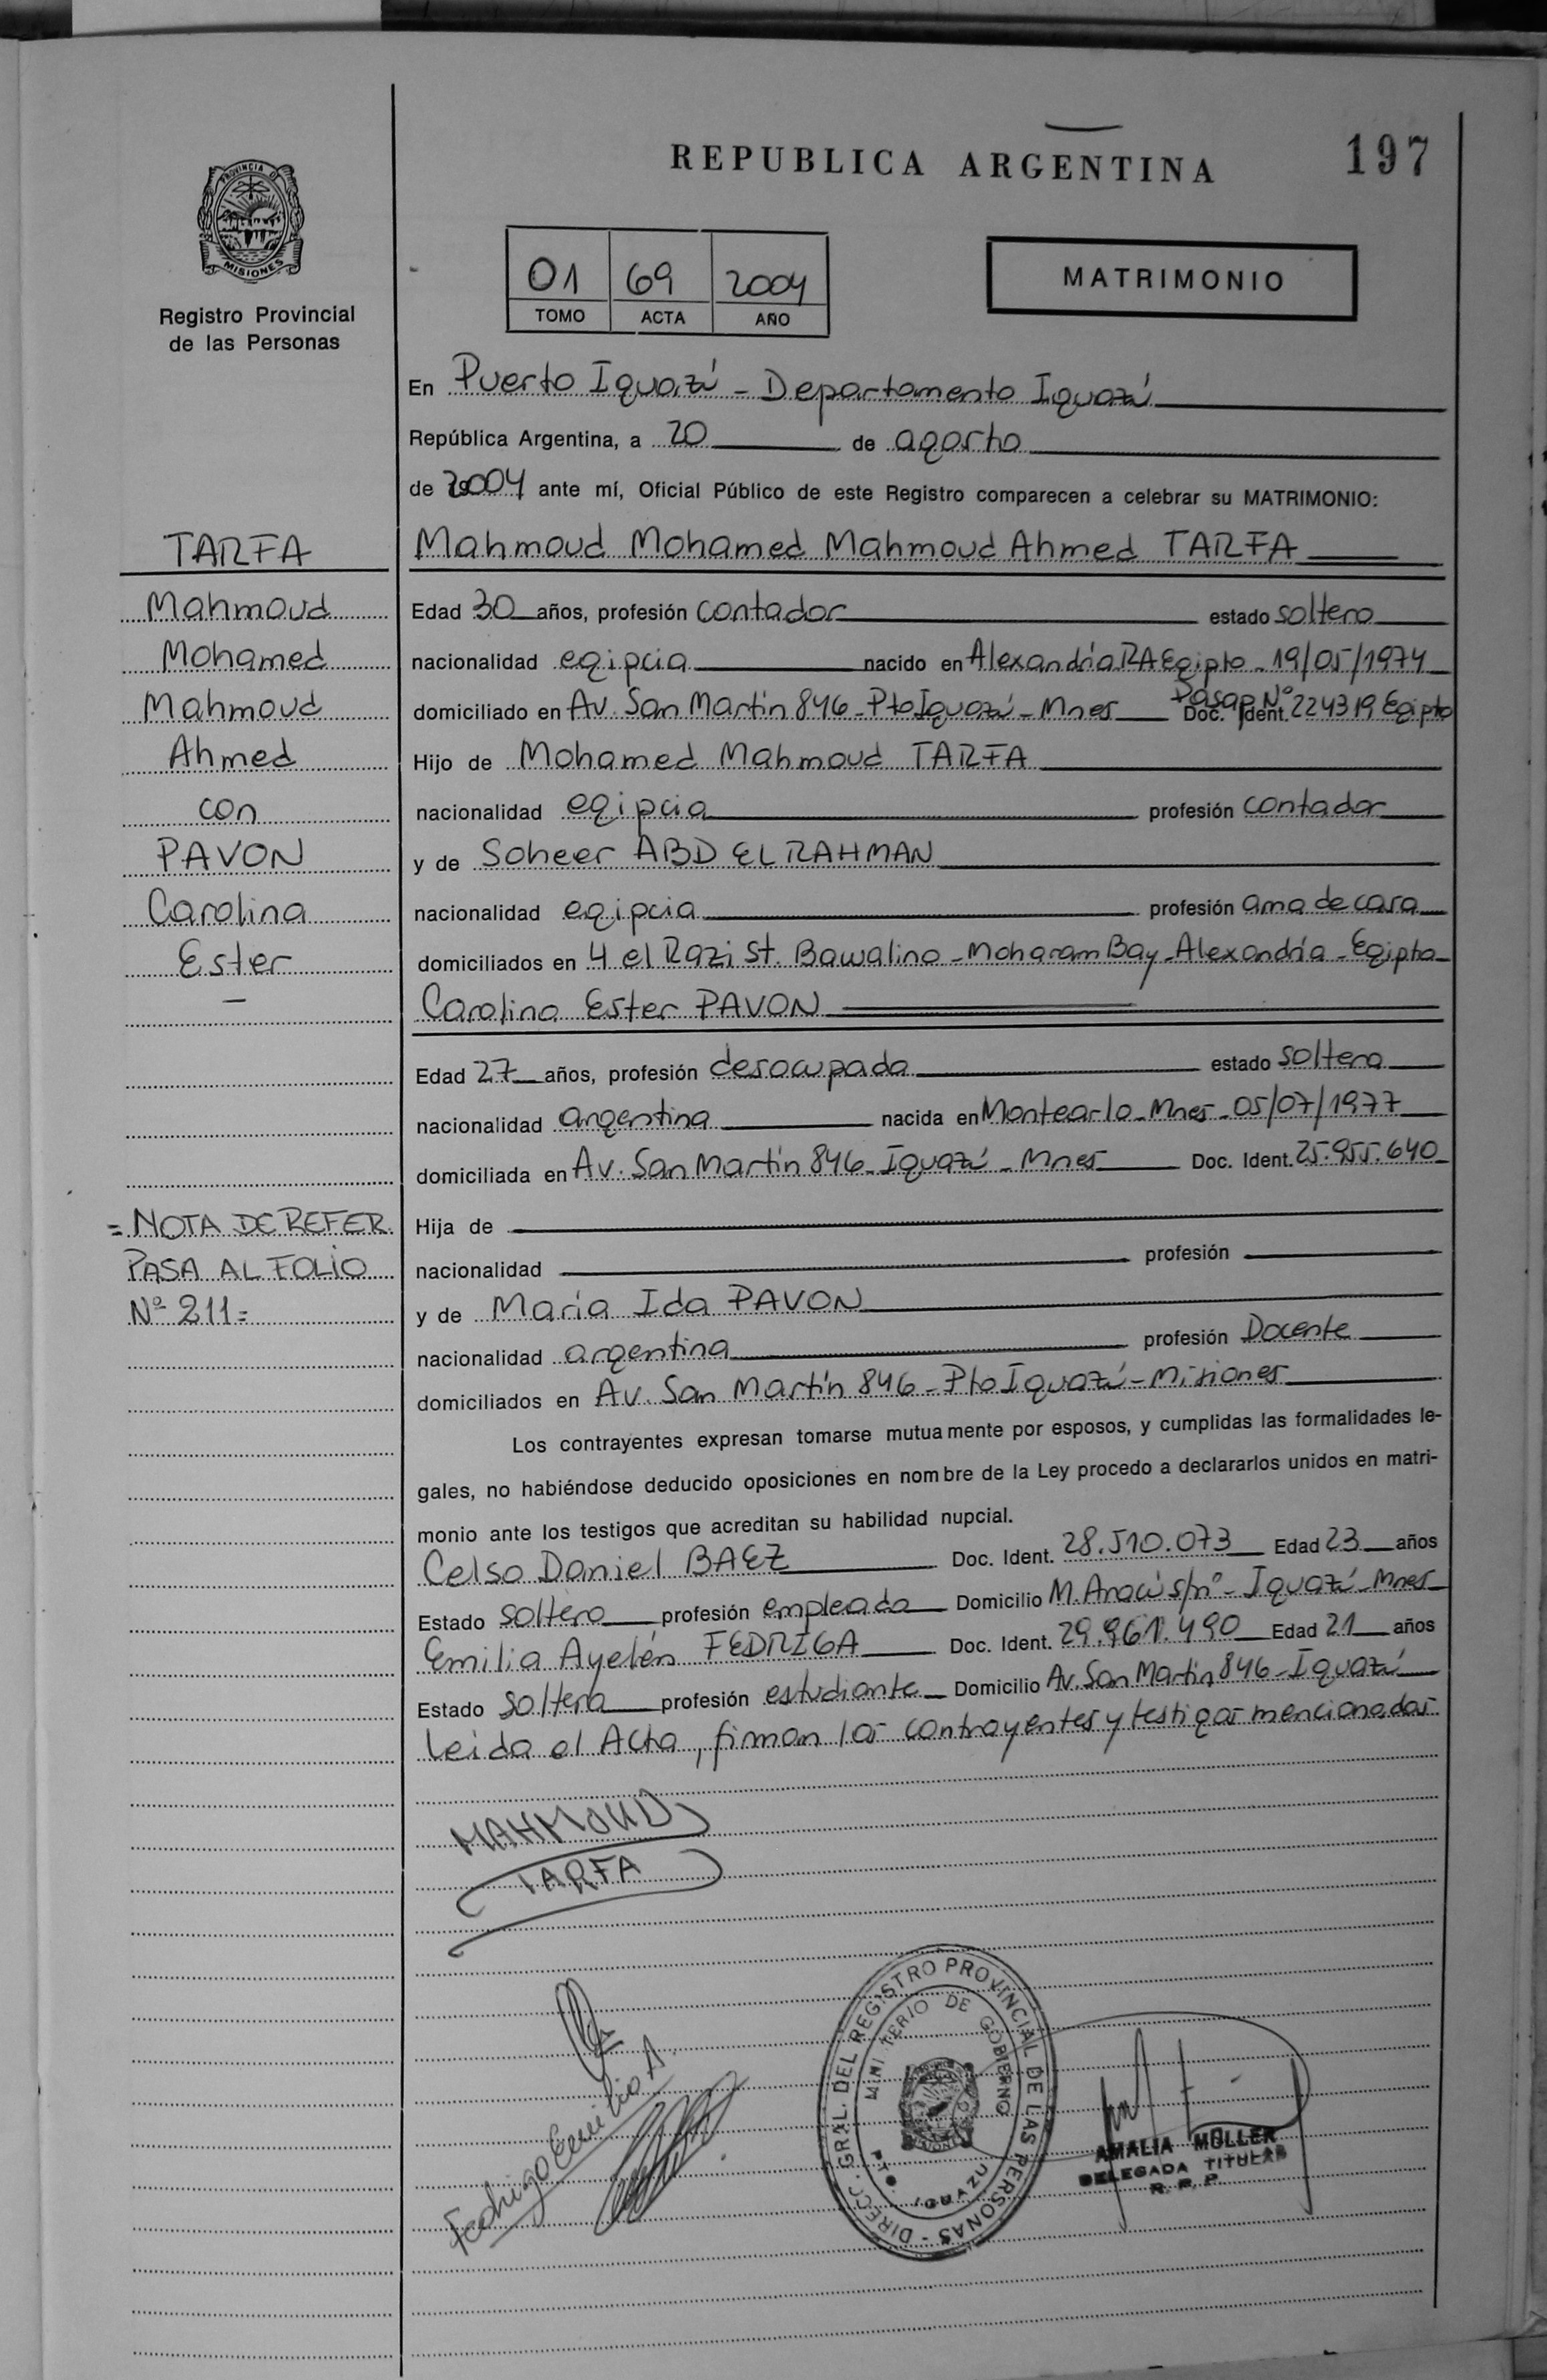 REPUBLICA ARGENTINA
197
PROVINCIA DE
MISIONES
Registro Provincial
de las Personas
01 69 2004
TOMO ACTA AÑO
MATRIMONIO
En Puerto Iguazú - Departamento Iguazú
República Argentina, a 20 de agosto
de 2004 ante mí, Oficial Público de este Registro comparecen a celebrar su MATRIMONIO:
TARFA
Mahmoud
Mohamed
Mahmoud
Ahmed
con
PAVON
Carolina
Ester
–
= NOTA DE REFER.
PASA AL FOLIO
Nº 211=
Mahmoud Mohamed Mahmoud Ahmed TARFA
Edad 30 años, profesión contador estado soltero
nacionalidad egipcia nacido en Alexandría RAEgipto - 19/05/1974
domiciliado en Av. San Martín 846 - Pto Iguazú - Mnes Doc. Ident. Pasap Nº 224319 Egipto
Hijo de Mohamed Mahmoud TARFA
nacionalidad egipcia profesión contador
y de Soheer ABD EL RAHMAN
nacionalidad egipcia profesión ama de casa
domiciliados en 4 el Razi St. Bawalino - Moharam Bay - Alexandría - Egipto
Carolina Ester PAVON
Edad 27 años, profesión desocupada estado soltera
nacionalidad argentina nacida en Montearlo - Mnes - 05/07/1977
domiciliada en Av. San Martín 846 - Iguazú - Mnes Doc. Ident. 25.955.640
Hija de
nacionalidad profesión
y de María Ida PAVON
nacionalidad argentina profesión Docente
domiciliados en Av. San Martín 846 - Pto Iguazú - Misiones
Los contrayentes expresan tomarse mutuamente por esposos, y cumplidas las formalidades le-
gales, no habiéndose deducido oposiciones en nombre de la Ley procedo a declararlos unidos en matri-
monio ante los testigos que acreditan su habilidad nupcial.
Celso Daniel BAEZ Doc. Ident. 28.510.073 Edad 23 años
Estado soltero profesión empleado Domicilio M. Aracú s/nº - Iguazú - Mnes
Emilia Ayelén FEDRIGA Doc. Ident. 29.961.490 Edad 21 años
Estado soltera profesión estudiante Domicilio Av. San Martín 846 - Iguazú
Leida el Acta, firman los contrayentes y testigos mencionados
MAHMOUD
TARFA
DIRECC. GRAL. DEL REGISTRO PROVINCIAL DE LAS PERSONAS -
MINISTERIO DE GOBIERNO
PTO IGUAZU
AMALIA MÜLLER
DELEGADA TITULAR
R. P. P.